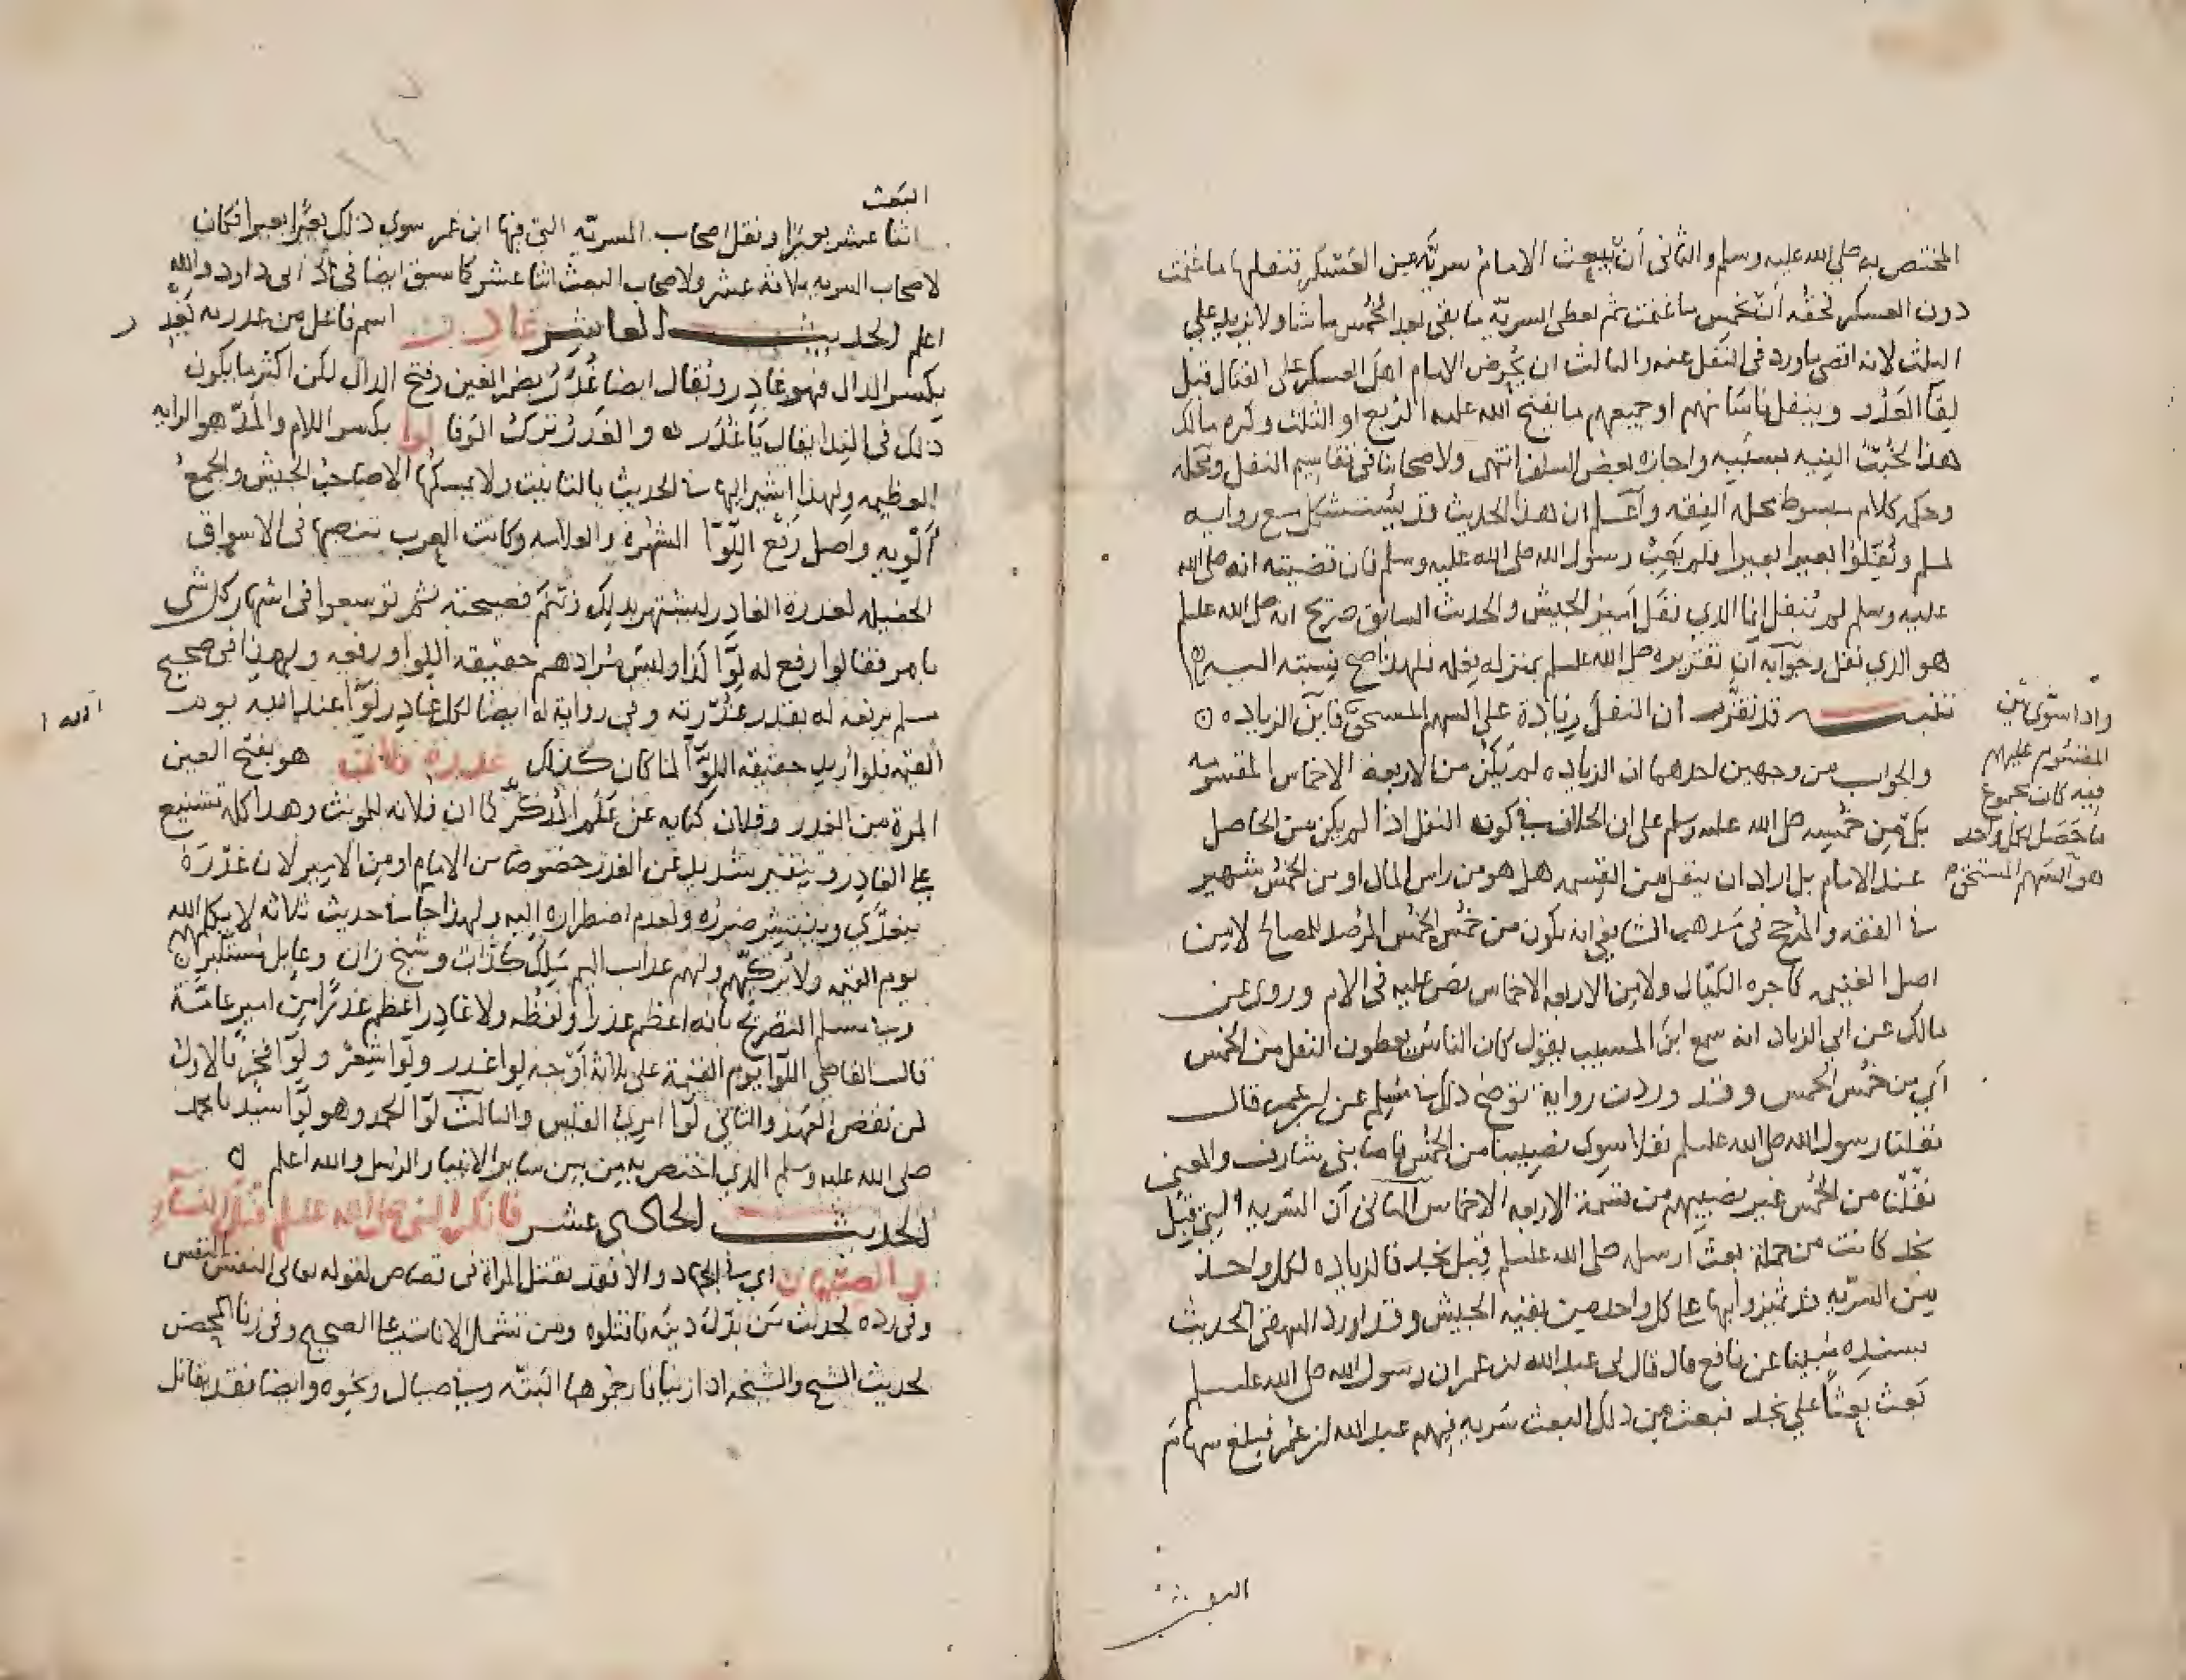 المختص به صلي الله عليه وسلم والثاني أن يبعث الامام سرية من العسكر فتنفلها ما غنمت
دون العسكر فحقه ان يخمس ما غنمت ثم يعطى السرية ما بقي بعد الخمس ما شا ولا يزيد علي
الثلث لانه اقصى ما ورد في النفل عنه والثالث ان يحرض الامام اهل العسكر على القتال قبل
لقآ العدو وينفل من شا منهم او جميعهم ما يفتح الله عليه الربع او الثلث وكره مالك
هذا لخبث النيه بسببه واجازه بعض السلف انتهى ولاصحابنا في تقاسيم النفل ومحله
وحكمه كلام مبسوط محله الفقه واعلم ان هذا الحديث قد يستشكل مع رواية
لمسلم ونفلوا بعيرا بعيرا فلم يعب رسول الله صلى الله عليه وسلم فان قضيته انه صلى الله
عليه وسلم لم ينفل انما الذي نفل أمير الجيش والحديث السابق صريح انه صلى الله عليه وسلم
هو الذي نفل وجوابه ان تقريره صلى الله عليه وسلم بمنزلة فعله فلهذا صح نسبته اليه
تنبيه قد تقرر ان النفل زيادة على السهم المستحق فاين الزياده
والجواب من وجهين احدهما ان الزياده لم يكن من الاربعة الاخماس المقسومه
بل من خمسه صلى الله عليه وسلم على ان الخلاف في كون النفل اذا لم يكن من الحاصل
عند الامام بل اراد ان ينفل من القسمه هل هو من راس المال او من الخمس شهير
في الفقه والمرجح في مذهب الشافعي انه يكون من خمس الخمس المرصد للمصالح لا من
اصل الغنيمه كاجرة الكيال ولا من الاربعه الاخماس نص عليه في الام وروى عن
مالك عن ابي الزناد انه سمع ابن المسيب يقول كان الناس يعطون النفل من الخمس
أي من خمس الخمس وقد وردت رواية توضح ذلك في مسلم عن ابن عمر قال
نفلنا رسول الله صلى الله عليه وسلم نفلا سوى نصيبنا من الخمس فاصابني شارف والمعنى
نفلنا من الخمس غير نصيبهم من قسمة الاربعه الاخماس الثاني أن السريه التي قبل
نجد كانت من جملة بعث ارسله صلى الله عليه وسلم قبل نجد فالزياده لكل واحد
من السريه قد تميزوا بها على كل واحد من بقيه الجيش وقد اورد البيهقي الحديث
بسنده مبينا عن نافع قال قال لي عبد الله بن عمر ان رسول الله صلى الله عليه وسلم
بعث بعثا علي نجد فبعث من ذلك البعث سريه فيهم عبد الله بن عمر فبلغ سهام
البعث
واذا استوى من
المقسوم عليهم
فيه كان مجموع
ما حصل لكل واحد
هو السهم المستحق
البعث
اثنا عشر بعيرا ونفل اصحاب السريه التي فيها ابن عمر سوى ذلك بعيرا بعيرا فكان
لاصحاب السريه ثلاثة عشر ولاصحاب البعث اثنا عشر كما سبق ايضا في ابي داود والله
اعلم الحديث العاشر غادر اسم فاعل من غدر به يغدر
بكسر الدال فهو غادر ويقال ايضا غُدَر بضم الغين وفتح الدال لكن اكثر ما يكون
ذلك في الندا يقال يا غدر والغدر ترك الوفا لوا بكسر اللام والمد هو الرايه
العظيمه ولهذا اشير اليها في الحديث بالتانيث ولا يمسكها الا صاحب الجيش والجمع
ألويه واصل رفع اللوا الشهرة والعلامه وكانت العرب تنصبها في الاسواق
الحفيله لغدرة الغادر ليشتهر بذلك وتتم فضيحته ثم توسعوا في اشهار كل شي
بامر فقالوا رفع له لوا كذا وليس مرادهم حقيقه اللوا ورفعه ولهذا في صحيح
مسلم يرفع له بقدر غدرته وفي رواية له ايضا لكل غادر لوا عند استه يوم
القيمه فلو اريد حقيقه اللوا لما كان كذلك غدرة فلان هو بفتح الغين
المرة من الغدر وفلان كنايه عن علم المذكر كما ان فلانه للمونث وهذا كله تشنيع
على الغادر وتنفير شديد عن الغدر خصوصا من الامام او من الامير لان غدره
يتعدى وينتشر ضرره ولعدم اضطراره اليه ولهذا جا في حديث ثلاثه لا يكلمهم الله
يوم القيمه ولا يزكيهم ولهم عذاب اليم ملك كذاب وشيخ زان وعايل مستكبر
وفي مسلم التصريح بانه اعظم غدرا ولفظه ولا غادر اعظم غدرا من امير عامة
قال القاضي اللوا يوم القيمة على ثلاثة أوجه لوا غدر ولوا شعر ولوا فخر فالاول
لمن نقض العهد والثاني لوا امرئ القيس والثالث لوا الحمد وهو لوا سيدنا محمد
صلى الله عليه وسلم الذي اختص به من بين ساير الانبيا والرسل والله اعلم
الحديث الحادي عشر فانكر النبي صلى الله عليه وسلم قتل النسآء
والصبيان اي في الجهاد والا فقد يقتل المراة في قصاص لقوله تعالى النفس بالنفس
وفي رده لحديث من بدل دينه فاقتلوه ومن تشمل الاناث على الصحيح وفي زنا المحصن
لحديث الشيخ والشيخه اذا زنيا فارجموهما البتة وفي صيال ونحوه وايضا فقد يقاتل